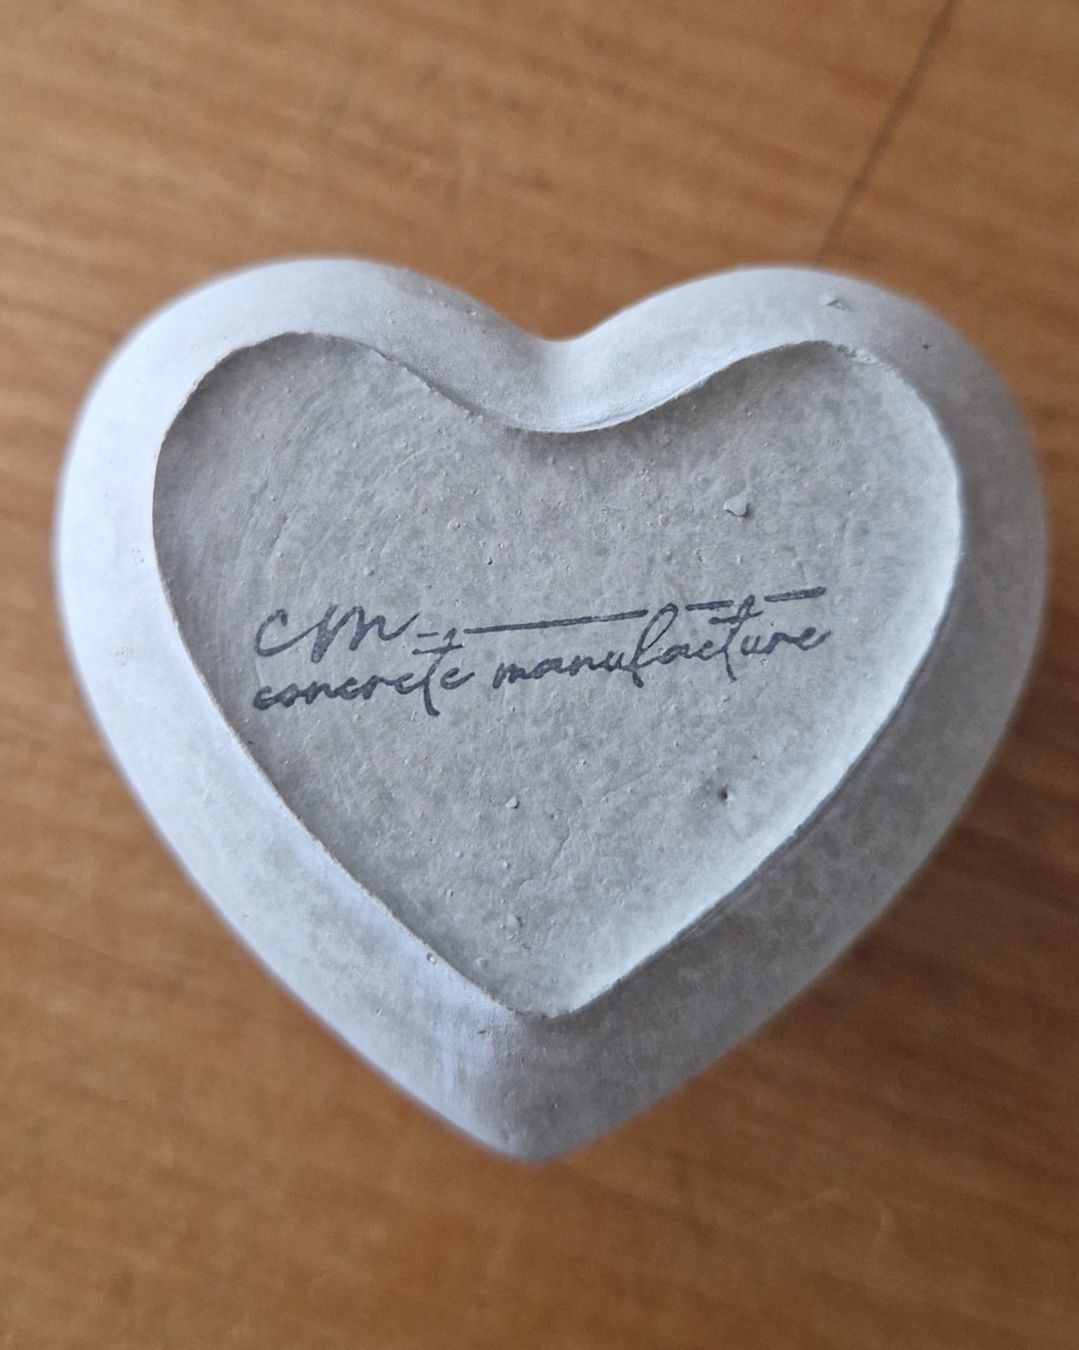 CM
concrete manufacture